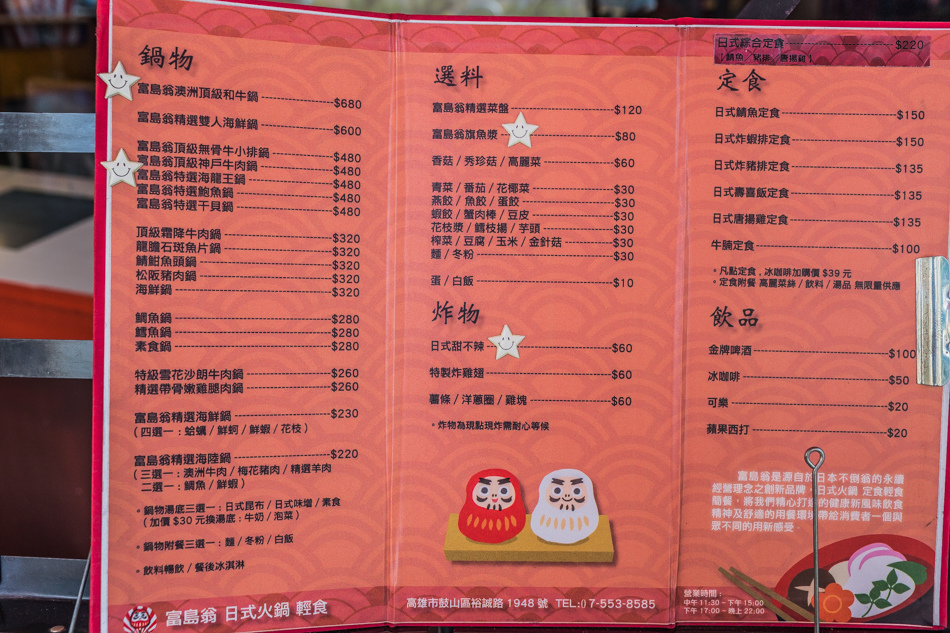 鍋物
富島翁澳洲頂級和牛鍋 $680
富島翁精選雙人海鮮鍋 $600
富島翁頂級無骨牛小排鍋 $480
富島翁頂級神戶牛肉鍋 $480
富島翁特選海龍王鍋 $480
富島翁特選鮑魚鍋 $480
富島翁特選干貝鍋 $480
頂級霜降牛肉鍋 $320
龍膽石斑魚片鍋 $320
鯖魽魚頭鍋 $320
松阪豬肉鍋 $320
海鮮鍋 $320
鯛魚鍋 $280
鱈魚鍋 $280
素食鍋 $280
特級雪花沙朗牛肉鍋 $260
精選帶骨嫩雞腿肉鍋 $260
富島翁精選海鮮鍋 $230
(四選一:蛤蠣/鮮蚵/鮮蝦/花枝)
富島翁精選海陸鍋 $220
(三選一:澳洲牛肉/梅花豬肉/精選羊肉
二選一:鯛魚/鮮蝦)
◦鍋物湯底三選一:日式昆布/日式味增/素食
(加價$30元換湯底:牛奶/泡菜)
◦鍋物附餐三選一:麵/冬粉/白飯
◦飲料暢飲/餐後冰淇淋
富島翁 日式火鍋 輕食
選料
富島翁精選菜盤 $120
富島翁旗魚漿 $80
香菇/秀珍菇/高麗菜 $60
青菜/番茄/花椰菜 $30
燕餃/魚餃/蛋餃 $30
蝦餃/蟹肉棒/豆皮 $30
花枝漿/鱈枝揚/芋頭 $30
榨菜/豆腐/玉米/金針菇 $30
麵/冬粉 $30
蛋/白飯 $10
炸物
日式甜不辣 $60
特製炸雞翅 $60
薯條/洋蔥圈/雞塊 $60
◦炸物為現點現炸需耐心等候
高雄市鼓山區裕誠路1948號 TEL:07-553-8585
日式綜合定食 $220
定食
日式鯖魚定食 $150
日式炸蝦排定食 $150
日式炸豬排定食 $135
日式壽喜飯定食 $135
日式唐揚雞定食 $135
牛腩定食 $100
◦凡點定食,冰咖啡加購價$39元
◦定食附餐 高麗菜絲/飲料/湯品 無限量供應
飲品
金牌啤酒 $100
冰咖啡 $50
可樂 $20
蘋果西打 $20
富島翁是源自於日本不倒翁的永續
經營理念之創新品牌,日式火鍋 定食輕食
簡餐,將我們精心打造的健康新風味飲食
精神及舒適的用餐環境帶給消費者一個與
眾不同的用新感受。
營業時間:
中午11:30-下午15:00
下午17:00-晚上22:00